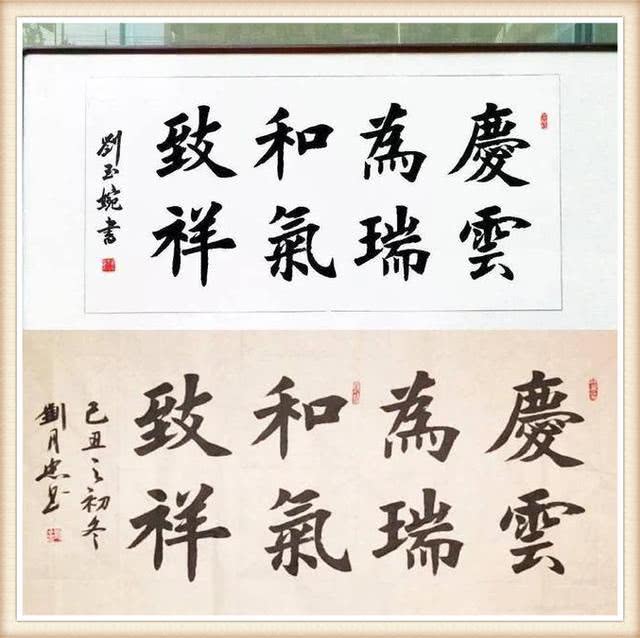 慶雲
為瑞
和氣
致祥
劉玉婉書
慶雲
為瑞
和氣
致祥
己丑之初冬
劉月忠書